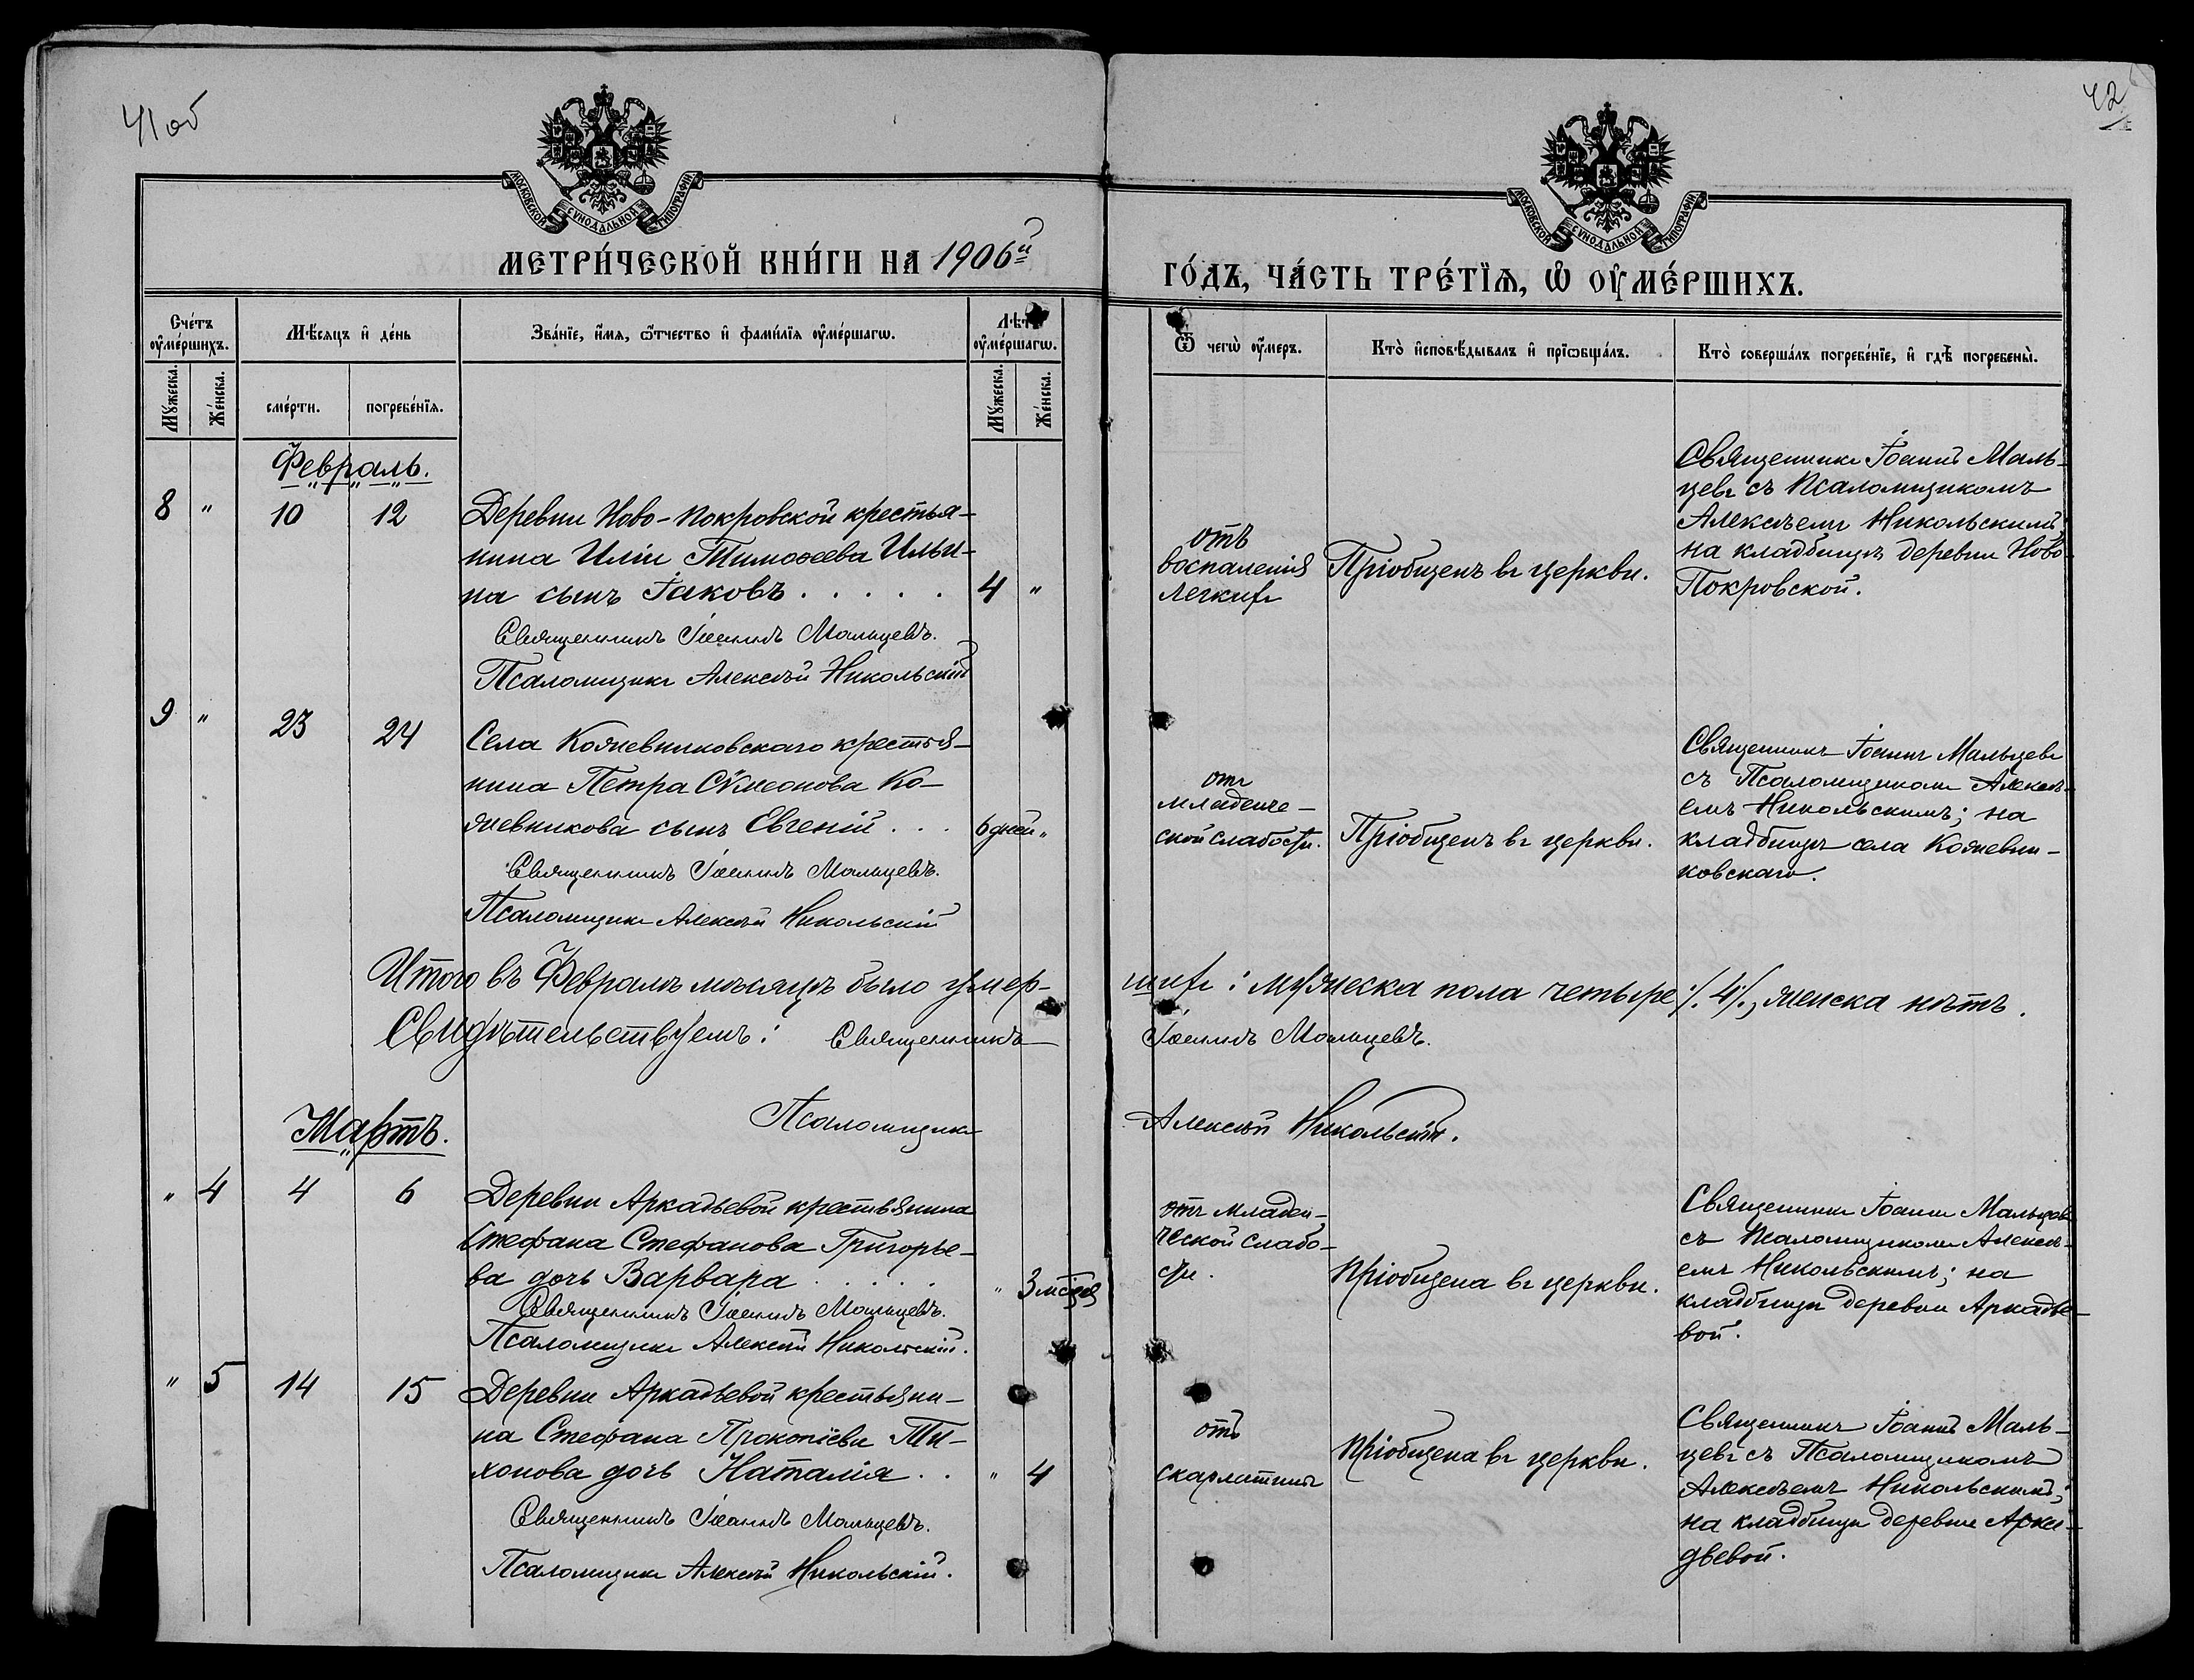 41 об
42
МОСКОВСКОЙ СѴНОДАЛЬНОЙ ТИПОГРАФІИ
МОСКОВСКОЙ СѴНОДАЛЬНОЙ ТИПОГРАФІИ
МЕТРИ́ЧЕСКОЙ КНИ́ГИ НА 1906й
ГО́ДЪ, ЧА́СТЬ ТРЕ́ТЇѦ, Ѡ҆ ОУ҆МЕ́РШИХЪ.
Сче́тъ оу҆ме́ршихъ.
Мѣ́сяцъ и҆ де́нь
Зва́нїе, и҆́мя, ѻ҆́тчество и҆ фами́лїя оу҆ме́ршагѡ.
Лѣт оу҆ме́ршагѡ.
Ѿ чегѡ̀ оу҆́меръ.
Кто̀ и҆сповѣ́дывалъ и҆ прїѡбща́лъ.
Кто̀ соверша́лъ погребе́нїе, и҆ гдѣ̀ погребены̀.
Мꙋ́жеска.
Же́нска.
сме́рти.
погребе́нїя.
Мꙋ́жеска.
Же́нска.
Февраль.
8 " 10 12
Деревни Ново-Покровской крестья-
нина Иліи Тимоѳеева Ильи-
на сынъ Іаковъ . . . . . 4 "
Священникъ Іоаннъ Мальцевъ.
Псаломщикъ Алексѣй Никольскій
отъ
воспаленія
легкихъ
Пріобщенъ въ церкви.
Священникъ Іоаннъ Маль-
цевъ съ Псаломщикомъ
Алексѣемъ Никольскимъ;
на кладбищѣ деревни Ново
Покровской.
9 " 23 24
Села Кожевниковскаго крестья-
нина Петра Сѵмеонова Ко-
жевникова сынъ Евгеній . . . 6 дней "
Священникъ Іоаннъ Мальцевъ.
Псаломщикъ Алексѣй Никольскій
отъ
младенче-
ской слабости.
Пріобщенъ въ церкви.
Священникъ Іоаннъ Мальцевъ
съ Псаломщикомъ Алексѣ-
емъ Никольскимъ; на
кладбищѣ села Кожевни-
ковскаго.
Итого въ Февралѣ мѣсяцѣ было умер-
шихъ: мужеска пола четыре /. 4 /., женска нѣтъ.
Свидѣтельствуемъ: Священникъ
Іоаннъ Мальцевъ.
Псаломщикъ
Алексѣй Никольскій.
Мартъ.
" 4 4 6
Деревни Аркадьевой крестьянина
Стефана Стефанова Григорье-
ва дочь Варвара . . . . . " 3 мѣсяца
Священникъ Іоаннъ Мальцевъ.
Псаломщикъ Алексѣй Никольскій.
отъ младен-
ческой слабо-
сти.
Пріобщена въ церкви.
Священникъ Іоаннъ Мальцевъ
съ Псаломщикомъ Алексѣ-
емъ Никольскимъ; на
кладбищѣ деревни Аркадье-
вой.
" 5 14 15
Деревни Аркадьевой крестьяни-
на Стефана Прокопіева Ти-
хонова дочь Наталія . . " 4
Священникъ Іоаннъ Мальцевъ.
Псаломщикъ Алексѣй Никольскій.
отъ
скарлатины
Пріобщена въ церкви.
Священникъ Іоаннъ Маль-
цевъ съ Псаломщикомъ
Алексѣемъ Никольскимъ;
на кладбищѣ деревни Арка-
дьевой.